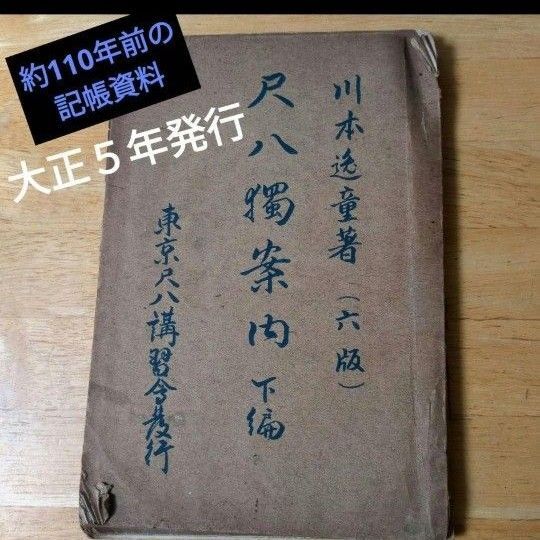 約110年前の
記帳資料
大正5年発行
川本逸童著(六版)
尺八獨案内 下編
東京尺八講習會發行